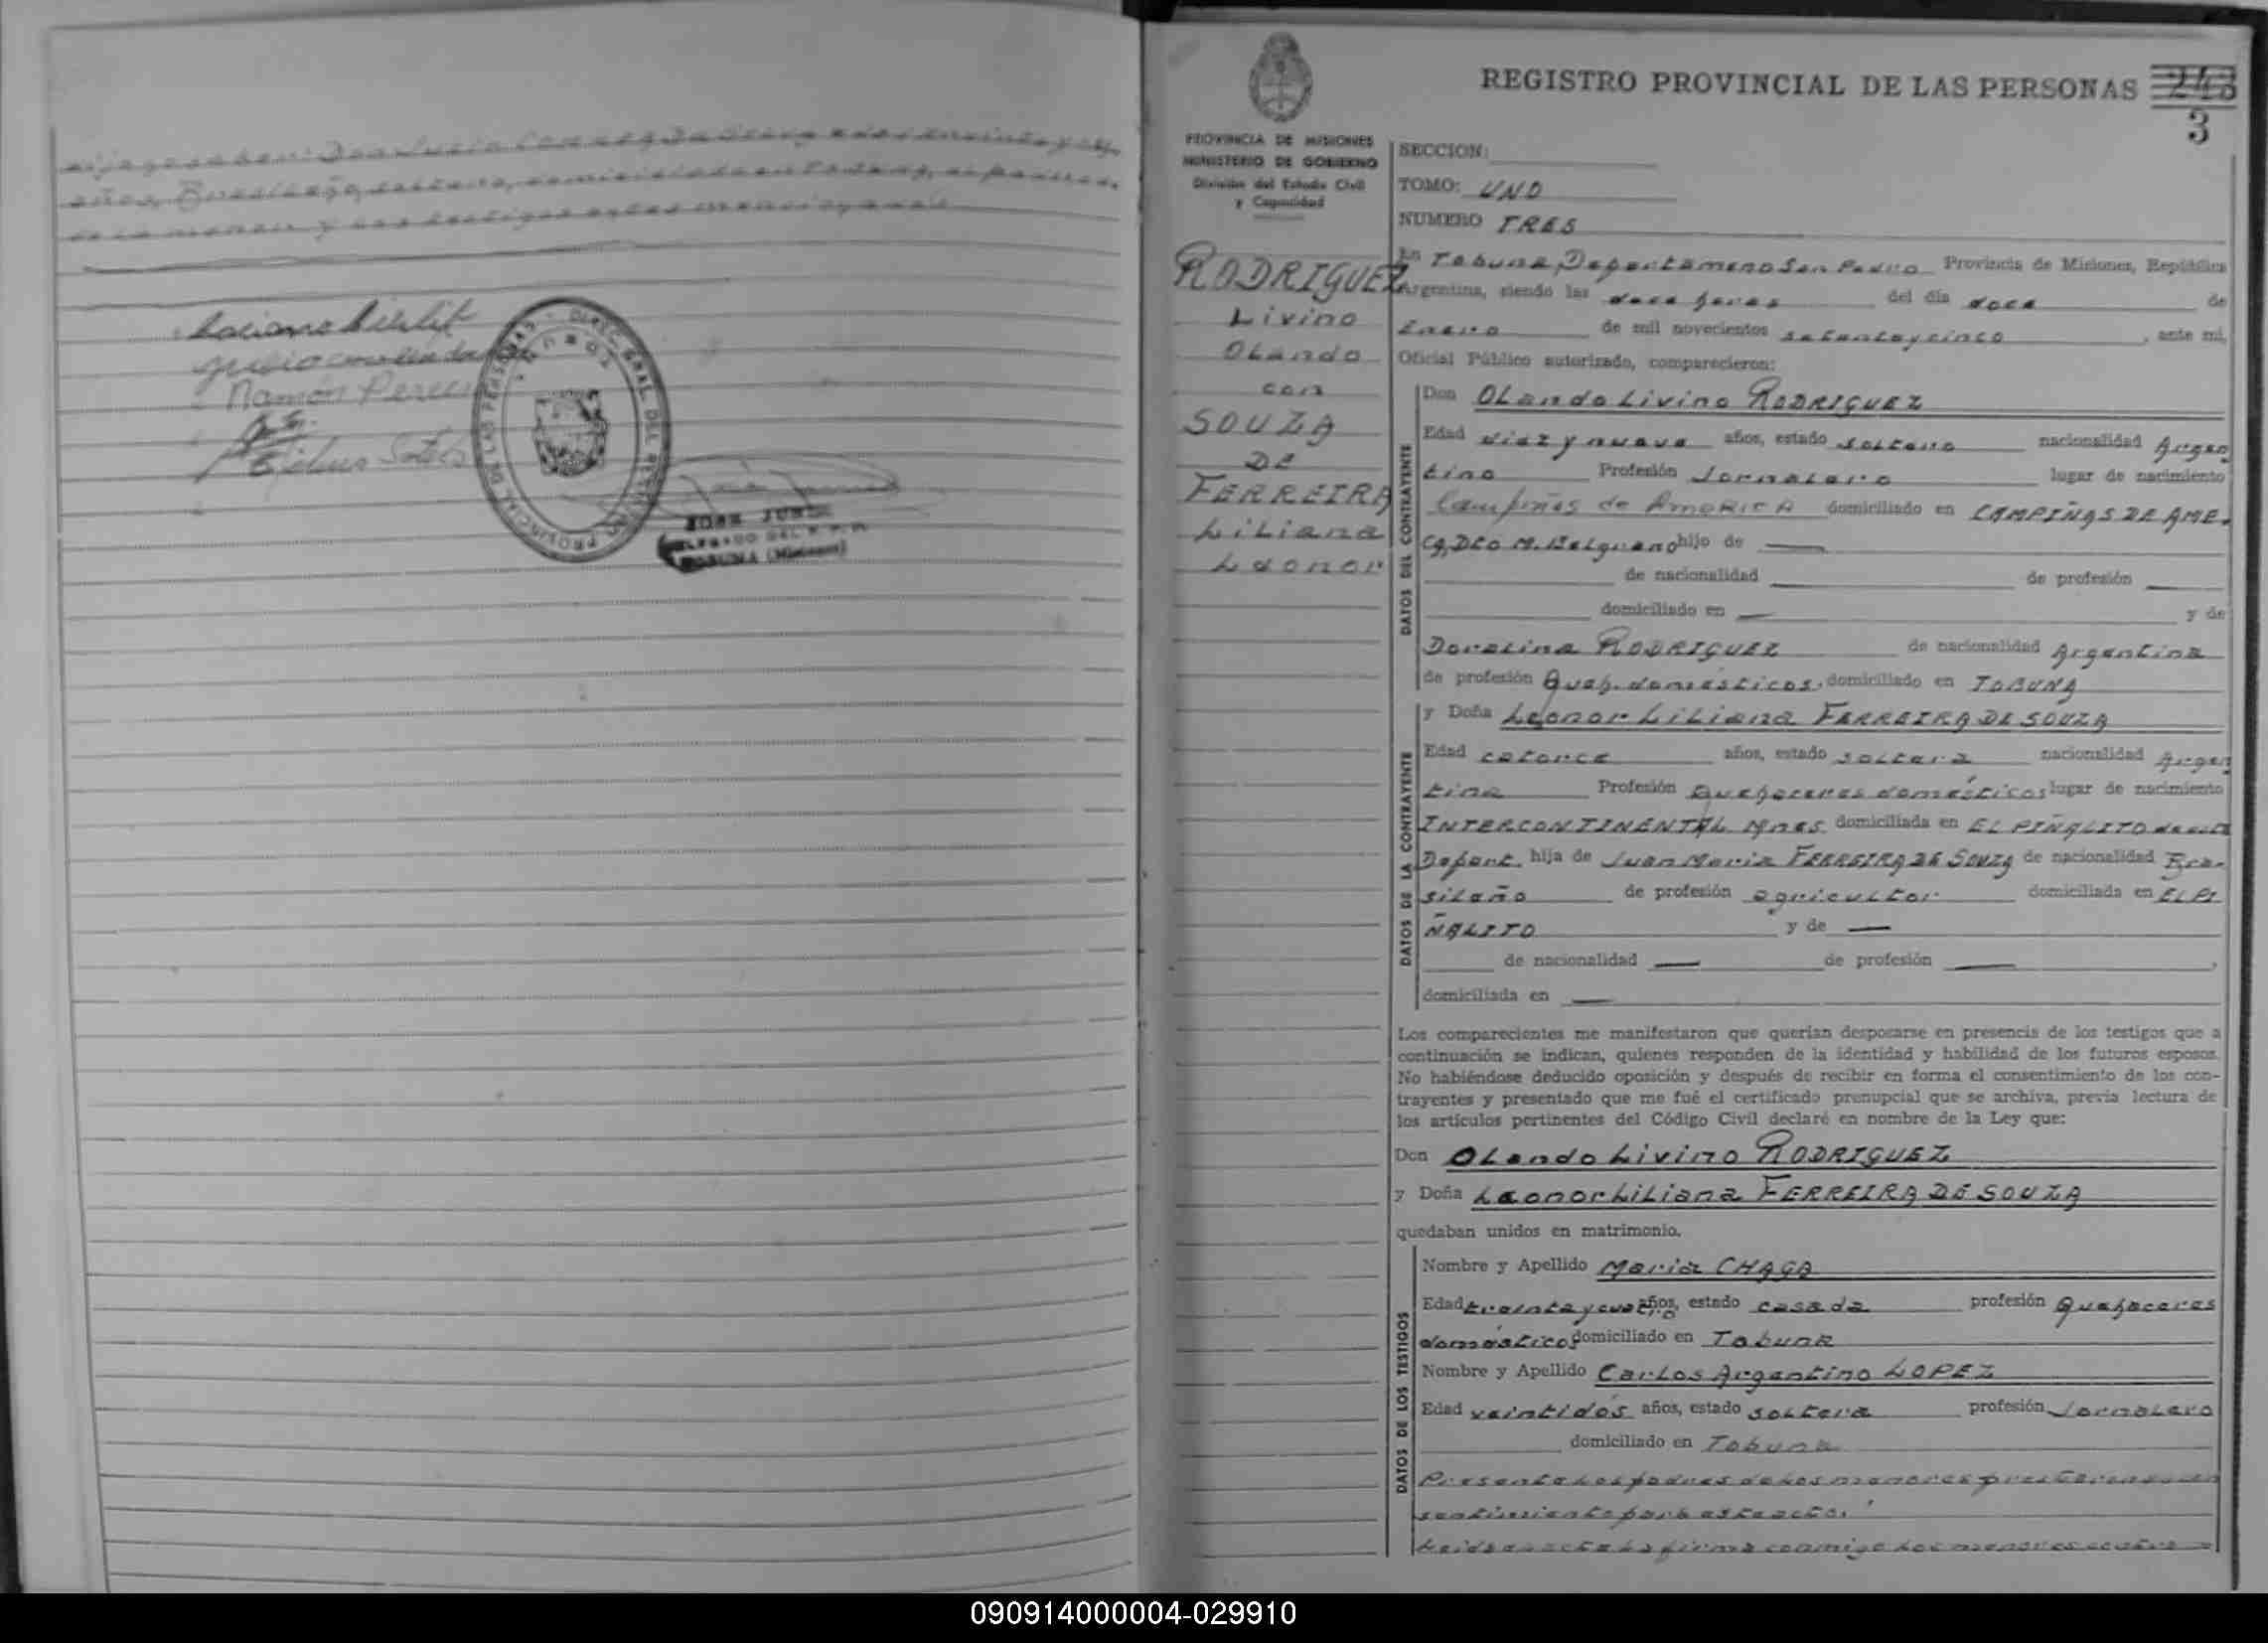 Ramón Perei
JOSE JUNG
TOBUNA (Misiones)
REGISTRO PROVINCIAL DE LAS PERSONAS 243
3
PROVINCIA DE MISIONES
MINISTERIO DE GOBIERNO
División del Estado Civil
y Capacidad
RODRIGUEZ
Livino
OLando
con
SOUZA
DE
FERREIRA
LiLiana
Leonor
SECCION:
TOMO: UNO
NUMERO TRES
En Tobuna, Departameno San Pedro Provincia de Misiones, República
Argentina, siendo las doce horas del día doce de
Enero de mil novecientos setenta y cinco, ante mí,
Oficial Público autorizado, comparecieron:
DATOS DEL CONTRAYENTE
Don OLando Livino RODRIGUEZ
Edad diez y nueve años, estado soltero nacionalidad Argen
tino Profesión Jornalero lugar de nacimiento
Campiñas de AmeRICA domiciliado en CAMPIÑAS DE AME.
CA, Dto M. Belgrano hijo de —
de nacionalidad de profesión
domiciliado en — y de
Doralina RODRIGUEZ de nacionalidad Argentina
de profesión Queh. domésticos, domiciliado en TOBUNA
DATOS DE LA CONTRAYENTE
y Doña Leonor LiLiana FERREIRA DE SOUZA
Edad catorce años, estado soltera nacionalidad Argen
tina Profesión Quehaceres domésticos lugar de nacimiento
INTERCONTINENTAL Mnes domiciliada en EL PIÑALITO de este
Depart. hija de Juan Maria FERREIRA DE SOUZA de nacionalidad Bra-
sileño de profesión agricultor domiciliada en EL PI
ÑALITO y de —
de nacionalidad — de profesión —,
domiciliada en —
Los comparecientes me manifestaron que querían desposarse en presencia de los testigos que a
continuación se indican, quienes responden de la identidad y habilidad de los futuros esposos.
No habiéndose deducido oposición y después de recibir en forma el consentimiento de los con-
trayentes y presentado que me fué el certificado prenupcial que se archiva, previa lectura de
los artículos pertinentes del Código Civil declaré en nombre de la Ley que:
Don OLando Livino RODRIGUEZ
y Doña Leonor LiLiana FERREIRA DE SOUZA
quedaban unidos en matrimonio.
DATOS DE LOS TESTIGOS
Nombre y Apellido Maria CHAGA
Edad treinta y cuatro años, estado casada profesión Quehaceres
domésticos domiciliado en Tobuna
Nombre y Apellido Carlos Argentino LOPEZ
Edad veintidós años, estado soltera profesión Jornalero
domiciliado en Tobuna
Presente los padres de los menores prestaron su con
sentimiento para este acto.
Leida el acta la firma conmigo los menores contra
090914000004-029910